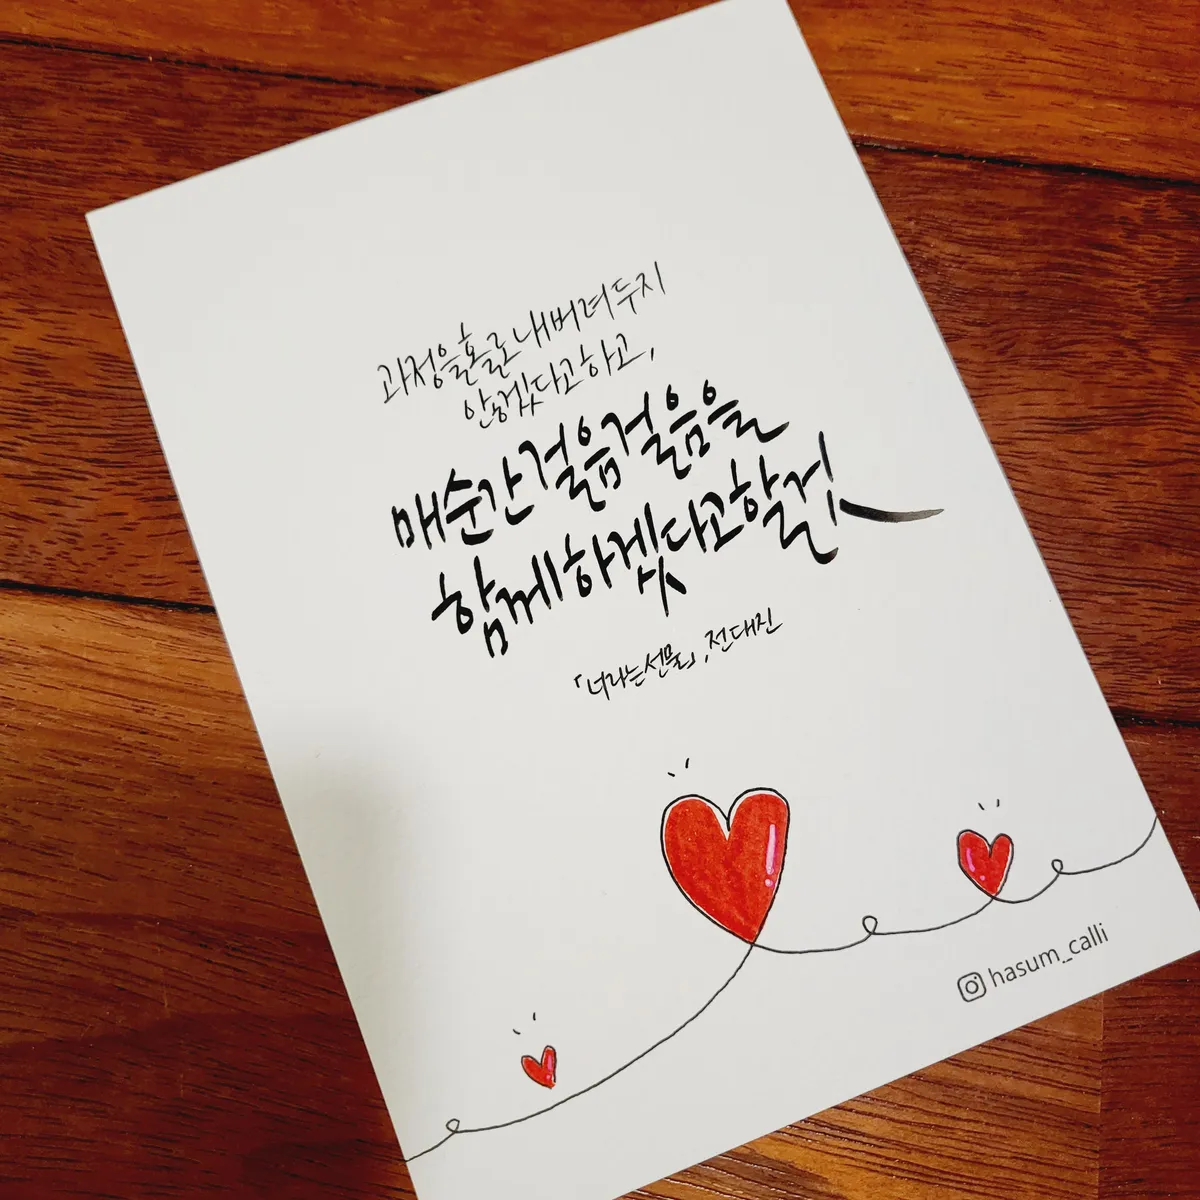 과정을 홀로 내버려 두지
않겠다고 하고,
매순간 걸음걸음을
함께하겠다고 할 것
「너라는 선물」, 전대진
hasum_calli